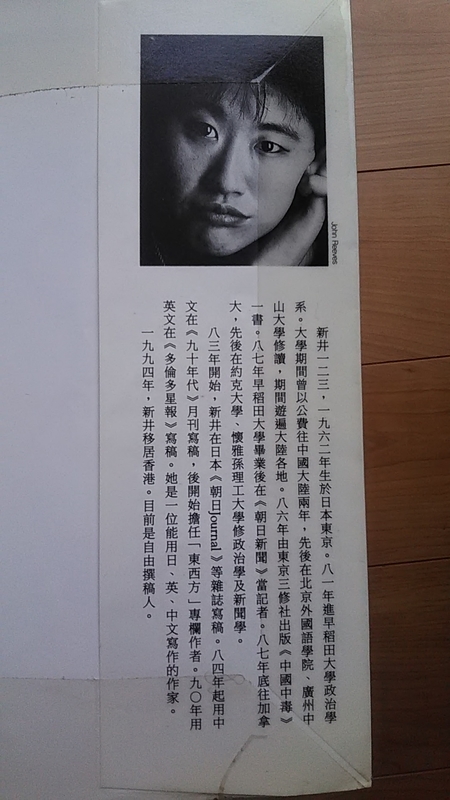 John Reeves
新井一二三，一九六二年生於日本東京。八一年進早稻田大學政治學
系。大學期間曾以公費往中國大陸兩年，先後在北京外國語學院、廣州中
山大學修讀，期間遊遍大陸各地。八六年由東京三修社出版《中國中毒》
一書。八七年早稻田大學畢業後在《朝日新聞》當記者。八七年底往加拿
大，先後在約克大學、懷雅孫理工大學修政治學及新聞學。
八三年開始，新井在日本《朝日Journal》等雜誌寫稿。八四年起用中
文在《九十年代》月刊寫稿，後開始擔任「東西方」專欄作者。九〇年用
英文在《多倫多星報》寫稿。她是一位能用日、英、中文寫作的作家。
一九九四年，新井移居香港。目前是自由撰稿人。